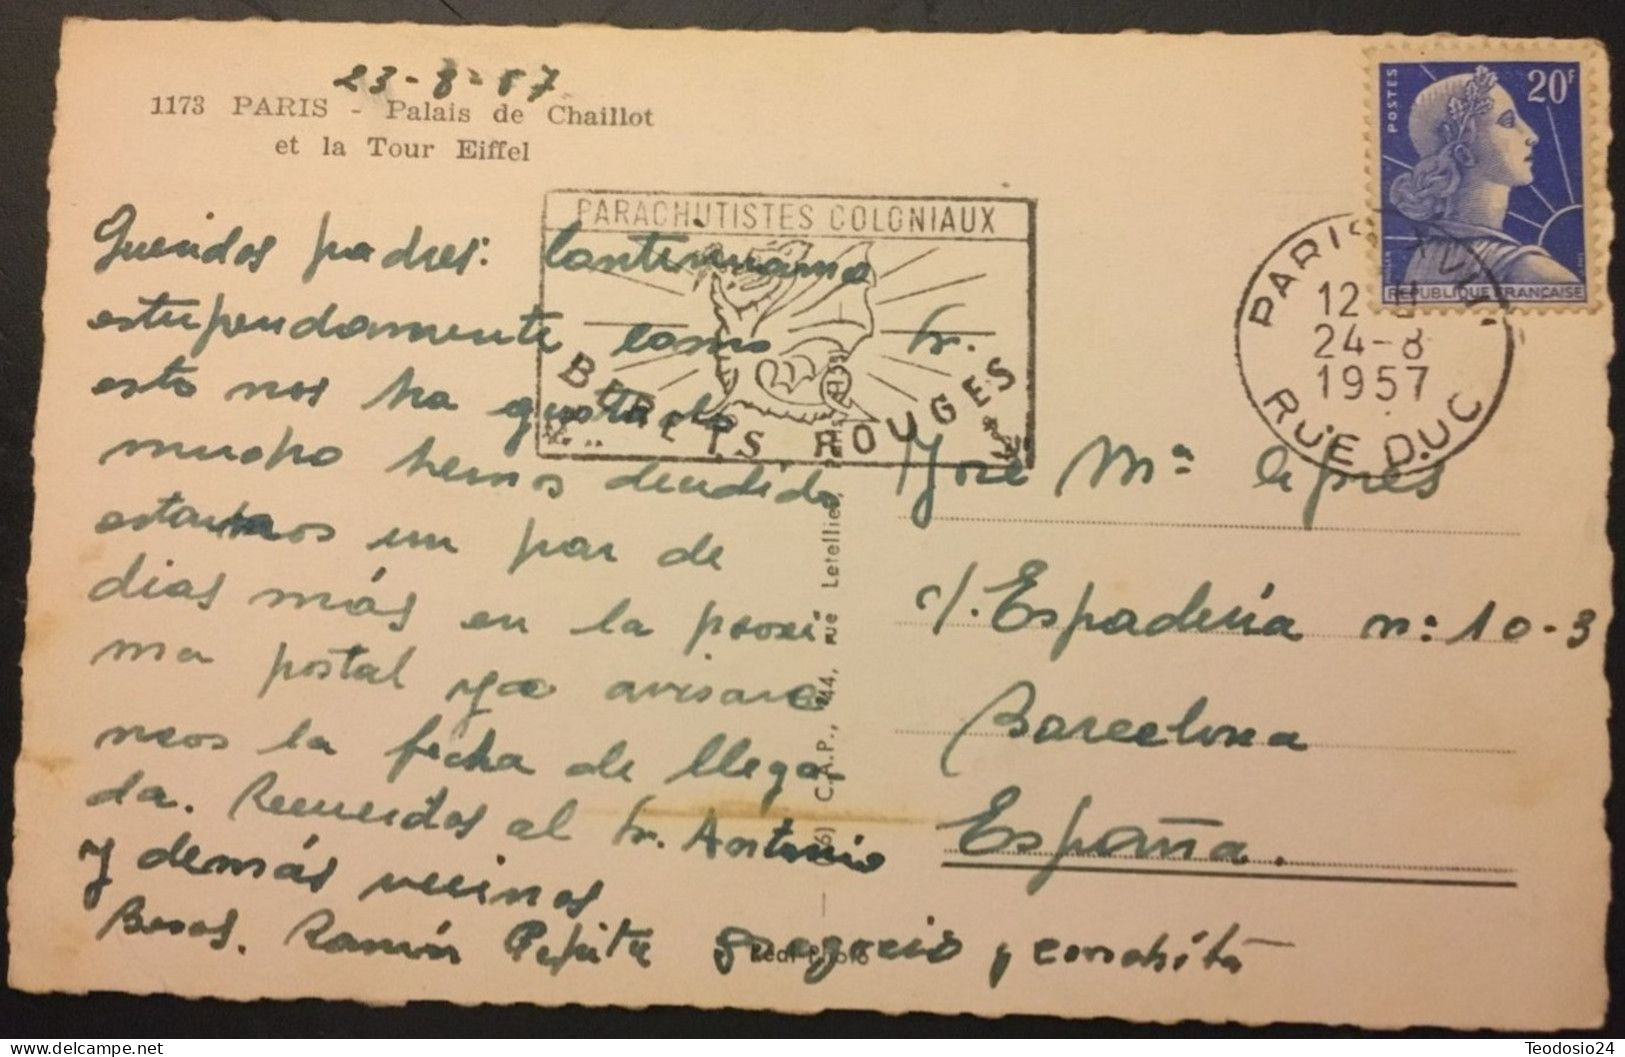 23-8-57
1173 PARIS - Palais de Chaillot
et la Tour Eiffel
POSTES
20F
REPUBLIQUE FRANÇAISE
PARACHUTISTES COLONIAUX
BERETS ROUGES
PARIS
12 H
24-8
1957
RUE DUC
Queridos padres: Continuamos
estupendamente como
esto nos ha gustado
mucho hemos decidido
estarnos un par de
dias más en la proxi
ma postal ya avisare
mos la fecha de llega
da. Recuerdos al Sr. Antonio
y demás vecinos
Besos. Ramón Pepita Gregorio y Conchita
Sr.
José Mª
c/. Espadería nº 10-3
Barcelona
España.
C.A.P., 44, rue Letellier, Paris
Real-Photo
Teodosio24